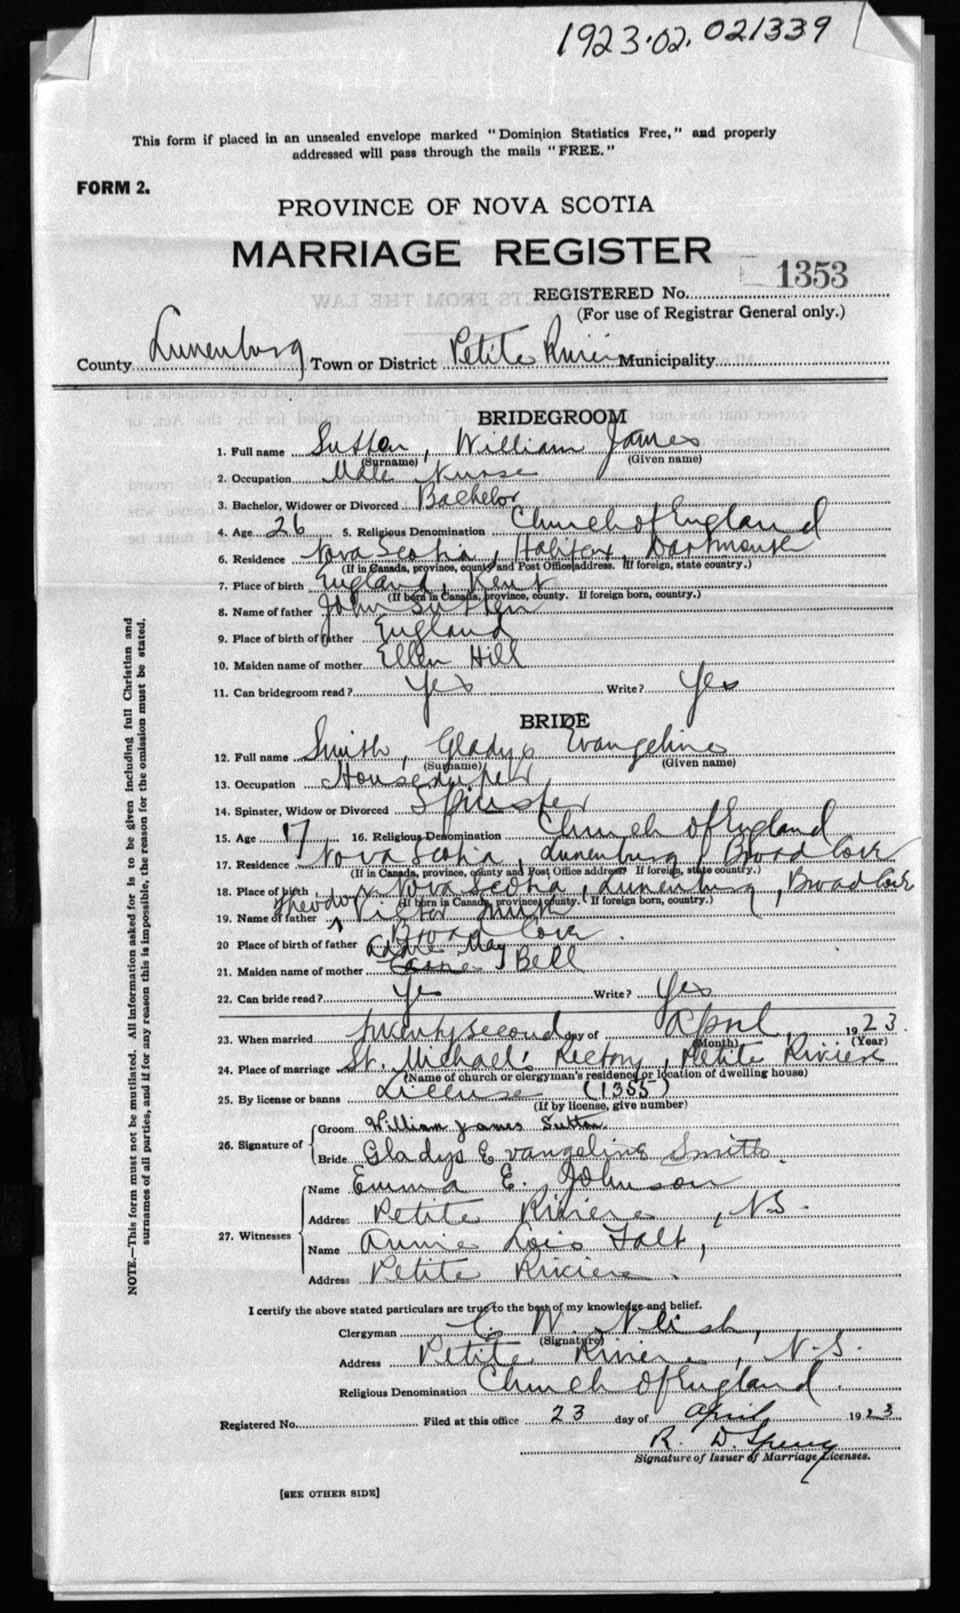 1923·02. 021339
This form if placed in an unsealed envelope marked "Dominion Statistics Free," and properly
addressed will pass through the mails "FREE."
FORM 2.
PROVINCE OF NOVA SCOTIA
MARRIAGE REGISTER
REGISTERED No. 1353
(For use of Registrar General only.)
County Lunenburg Town or District Petite Riviere Municipality
BRIDEGROOM
1. Full name Sutton, William James
(Surname) (Given name)
2. Occupation Male Nurse
3. Bachelor, Widower or Divorced Bachelor
4. Age 26 5. Religious Denomination Church of England
6. Residence Nova Scotia, Halifax, Dartmouth
(If in Canada, province, county and Post Office address. If foreign, state country.)
7. Place of birth England, Kent
(If born in Canada, province, county. If foreign born, country.)
8. Name of father John Sutton
9. Place of birth of father England
10. Maiden name of mother Ellen Hill
11. Can bridegroom read? Yes Write? Yes
BRIDE
12. Full name Smith, Gladys Evangeline
(Surname) (Given name)
13. Occupation Housekeeper
14. Spinster, Widow or Divorced Spinster
15. Age 17 16. Religious Denomination Church of England
17. Residence Nova Scotia, Lunenburg, Broad Cove
(If in Canada, province, county and Post Office address. If foreign, state country.)
18. Place of birth Nova Scotia, Lunenburg, Broad Cove
(If born in Canada, province, county. If foreign born, country.)
19. Name of father Theodor Victor Smith
20 Place of birth of father Broad Cove.
21. Maiden name of mother Addie May Bell
22. Can bride read? Yes Write? Yes
23. When married twenty second day of April, 1923.
(Month) (Year)
24. Place of marriage St. Michael's Rectory, Petite Riviere
(Name of church or clergyman's residence or location of dwelling house)
25. By license or banns License (1355)
(If by license, give number)
26. Signature of Groom William James Sutton.
Bride Gladys Evangeline Smith.
27. Witnesses
Name Emma E. Johnson
Address Petite Riviere, N.S.
Name Annie Lois Falt,
Address Petite Riviere.
I certify the above stated particulars are true to the best of my knowledge and belief.
Clergyman C. W. Neish,
(Signature)
Address Petite Riviere, N.S.
Religious Denomination Church of England.
Registered No. Filed at this office 23 day of April 1923
R. D. Sperry
Signature of Issuer of Marriage Licenses.
[SEE OTHER SIDE]
NOTE.—This form must not be mutilated. All information asked for is to be given including full Christian and
surnames of all parties, and if for any reason this is impossible, the reason for the omission must be stated.